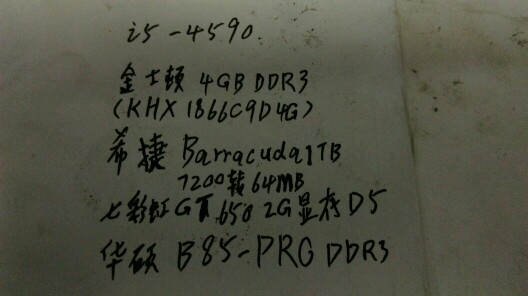 i5-4590
金士顿 4GB DDR3
(KHX 1866C9D4G)
希捷 Barracuda1TB
7200转 64MB
七彩虹 GT 650 2G显存 D5
华硕 B85-PRO DDR3